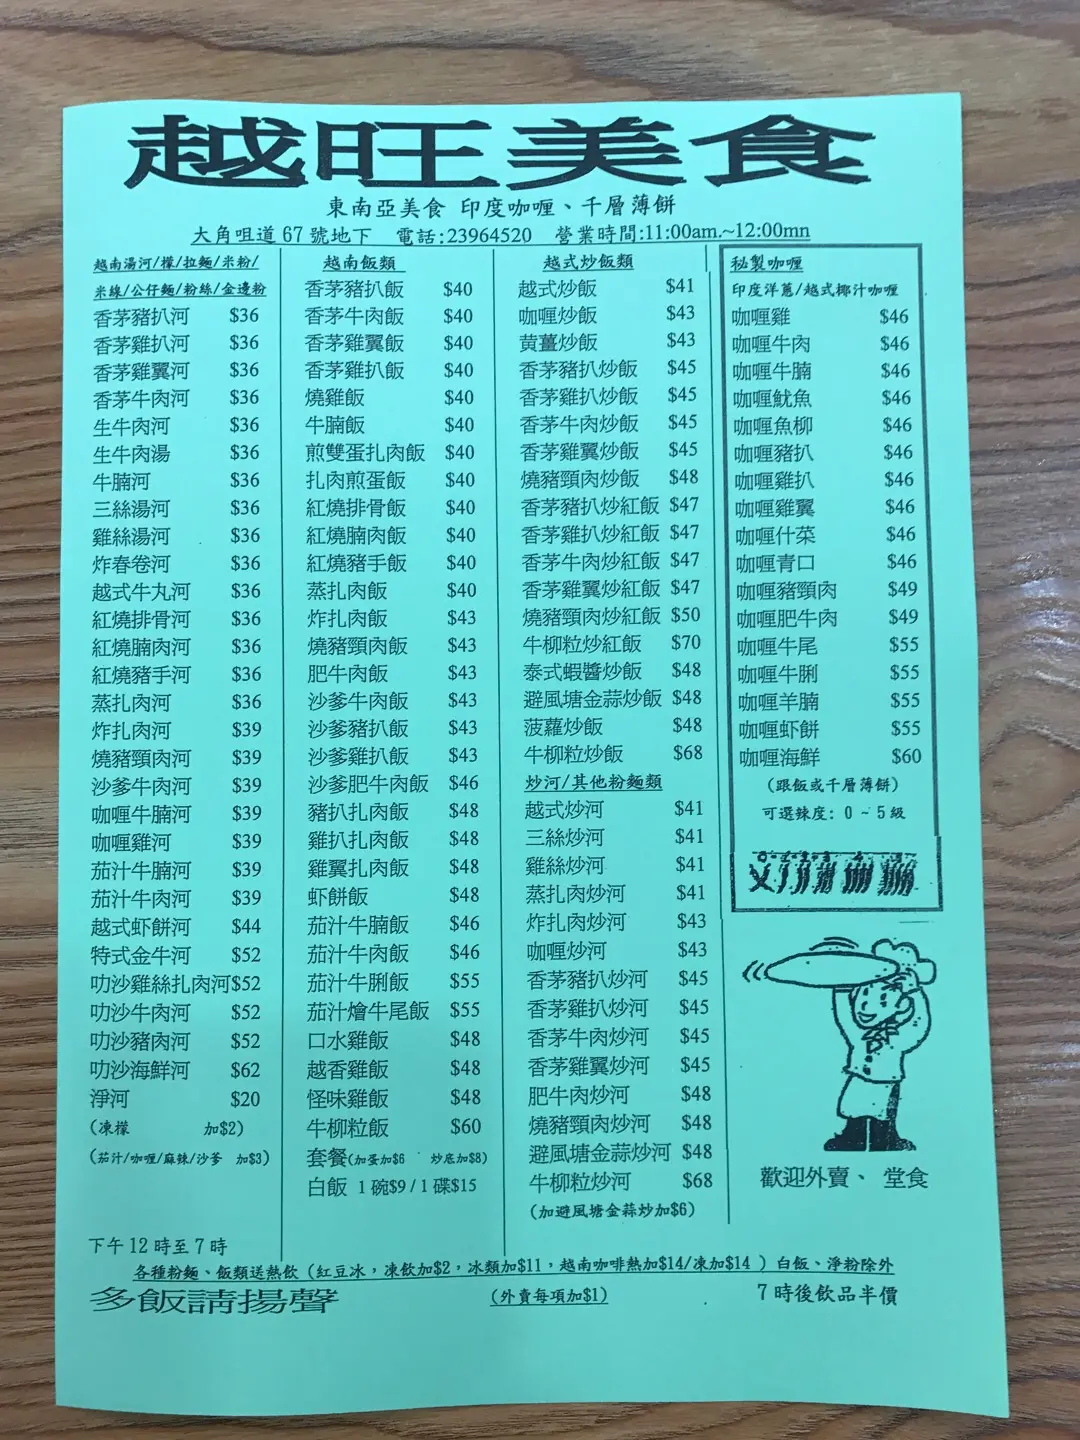 越旺美食
東南亞美食 印度咖喱、千層薄餅
大角咀道 67 號地下 電話:23964520 營業時間:11:00am.~12:00mn
越南湯河/檬/拉麵/米粉/
米線/公仔麵/粉絲/金邊粉
香茅豬扒河 $36
香茅雞扒河 $36
香茅雞翼河 $36
香茅牛肉河 $36
生牛肉河 $36
生牛肉湯 $36
牛腩河 $36
三絲湯河 $36
雞絲湯河 $36
炸春卷河 $36
越式牛丸河 $36
紅燒排骨河 $36
紅燒腩肉河 $36
紅燒豬手河 $36
蒸扎肉河 $36
炸扎肉河 $39
燒豬頸肉河 $39
沙爹牛肉河 $39
咖喱牛腩河 $39
咖喱雞河 $39
茄汁牛腩河 $39
茄汁牛肉河 $39
越式虾餅河 $44
特式金牛河 $52
叻沙雞絲扎肉河$52
叻沙牛肉河 $52
叻沙豬肉河 $52
叻沙海鮮河 $62
淨河 $20
(凍檬 加$2)
(茄汁/咖喱/麻辣/沙爹 加$3)
越南飯類
香茅豬扒飯 $40
香茅牛肉飯 $40
香茅雞翼飯 $40
香茅雞扒飯 $40
燒雞飯 $40
牛腩飯 $40
煎雙蛋扎肉飯 $40
扎肉煎蛋飯 $40
紅燒排骨飯 $40
紅燒腩肉飯 $40
紅燒豬手飯 $40
蒸扎肉飯 $40
炸扎肉飯 $43
燒豬頸肉飯 $43
肥牛肉飯 $43
沙爹牛肉飯 $43
沙爹豬扒飯 $43
沙爹雞扒飯 $43
沙爹肥牛肉飯 $46
豬扒扎肉飯 $48
雞扒扎肉飯 $48
雞翼扎肉飯 $48
虾餅飯 $48
茄汁牛腩飯 $46
茄汁牛肉飯 $46
茄汁牛脷飯 $55
茄汁燴牛尾飯 $55
口水雞飯 $48
越香雞飯 $48
怪味雞飯 $48
牛柳粒飯 $60
套餐(加蛋加$6 炒底加$8)
白飯 1 碗$9 / 1 碟$15
越式炒飯類
越式炒飯 $41
咖喱炒飯 $43
黄薑炒飯 $43
香茅豬扒炒飯 $45
香茅雞扒炒飯 $45
香茅牛肉炒飯 $45
香茅雞翼炒飯 $45
燒豬頸肉炒飯 $48
香茅豬扒炒紅飯 $47
香茅雞扒炒紅飯 $47
香茅牛肉炒紅飯 $47
香茅雞翼炒紅飯 $47
燒豬頸肉炒紅飯 $50
牛柳粒炒紅飯 $70
泰式蝦醬炒飯 $48
避風塘金蒜炒飯 $48
菠蘿炒飯 $48
牛柳粒炒飯 $68
炒河/其他粉麵類
越式炒河 $41
三絲炒河 $41
雞絲炒河 $41
蒸扎肉炒河 $41
炸扎肉炒河 $43
咖喱炒河 $43
香茅豬扒炒河 $45
香茅雞扒炒河 $45
香茅牛肉炒河 $45
香茅雞翼炒河 $45
肥牛肉炒河 $48
燒豬頸肉炒河 $48
避風塘金蒜炒河 $48
牛柳粒炒河 $68
(加避風塘金蒜炒加$6)
秘製咖喱
印度洋蔥/越式椰汁咖喱
咖喱雞 $46
咖喱牛肉 $46
咖喱牛腩 $46
咖喱魷魚 $46
咖喱魚柳 $46
咖喱豬扒 $46
咖喱雞扒 $46
咖喱雞翼 $46
咖喱什菜 $46
咖喱青口 $46
咖喱豬頸肉 $49
咖喱肥牛肉 $49
咖喱牛尾 $55
咖喱牛脷 $55
咖喱羊腩 $55
咖喱虾餅 $55
咖喱海鮮 $60
(跟飯或千層薄餅)
可選辣度: 0 ~ 5 級
歡迎外賣、 堂食
下午 12 時至 7 時
各種粉麵、飯類送熱飲 (紅豆冰，凍飲加$2，冰類加$11，越南咖啡熱加$14/凍加$14 ) 白飯、淨粉除外
多飯請揚聲 (外賣每項加$1) 7 時後飲品半價